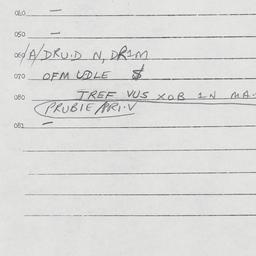 060 —
050 —
060 /A/ DRU.D N, DR1M
070 OFM UDLE $
080 TREF VUS XOB 1N MA
PRUBIE/PRI.V
081 —